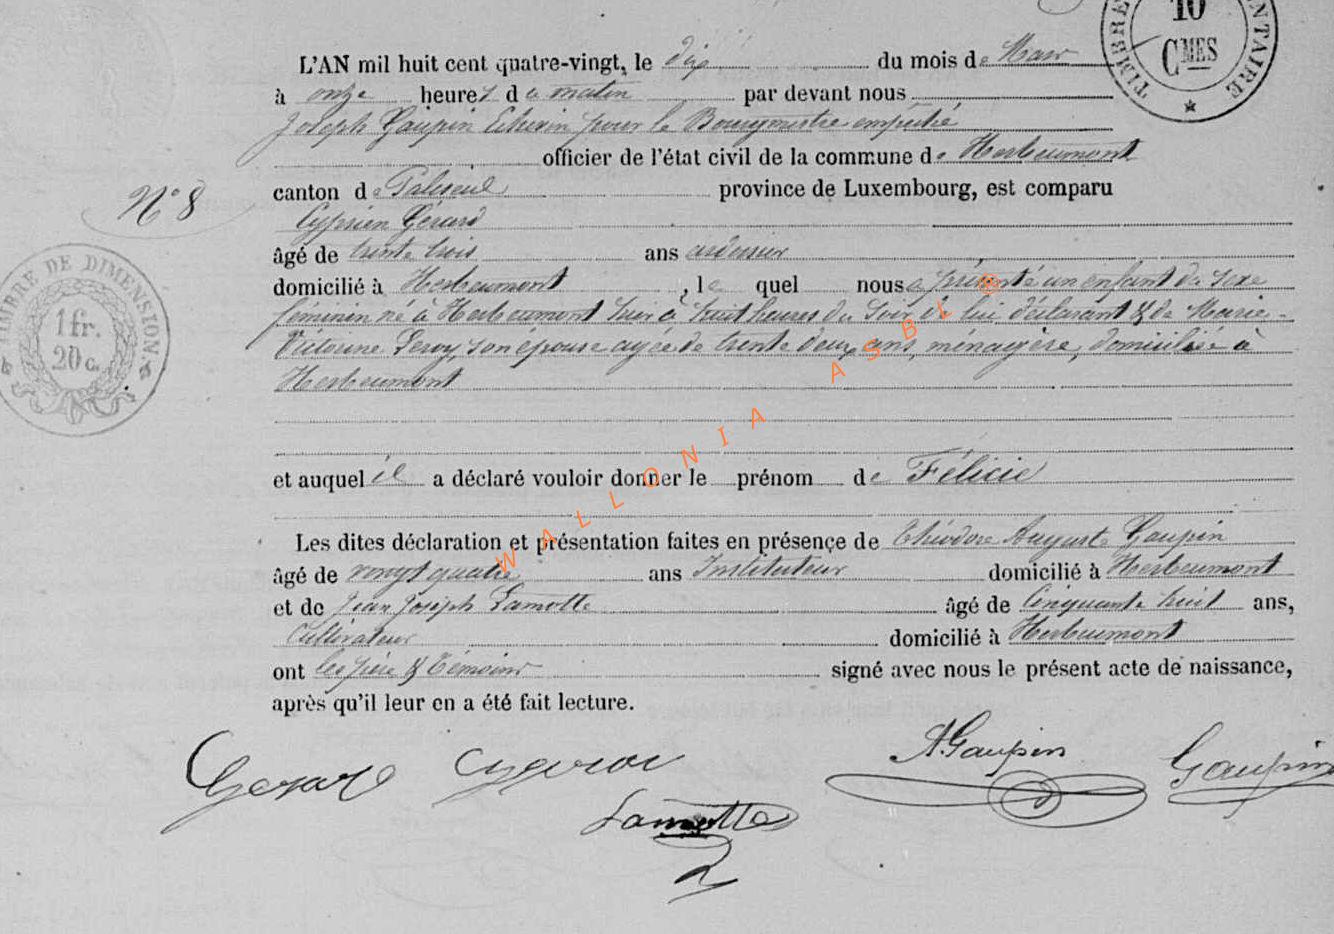 TIMBRE
10
CMES
ENTAIRE
L'AN mil huit cent quatre-vingt, le dix du mois de Mars
à onze heures du matin par devant nous
Joseph Gaupin Echevin pour le Bourgmestre empêché
officier de l'état civil de la commune de Herbeumont
N° 8
canton de Paliseul province de Luxembourg, est comparu
Cyprien Gérard
âgé de trente trois ans ardoisier
domicilié à Herbeumont, le quel nous a présenté un enfant du sexe
féminin né à Herbeumont hier à huit heures du soir de lui déclarant & de Marie-
Victorine Leroy, son épouse agée de trente deux ans, ménagère, domiciliée à
Herbeumont
TIMBRE DE DIMENSION
1 fr.
20 c.
et auquel il a déclaré vouloir donner le prénom de Félicie
Les dites déclaration et présentation faites en présence de Théodore Auguste Gaupin
âgé de vingt quatre ans Instituteur domicilié à Herbeumont
et de Jean Joseph Lamotte âgé de Cinquante huit ans,
Cultivateur domicilié à Herbeumont
ont les père & témoins signé avec nous le présent acte de naissance,
après qu'il leur en a été fait lecture.
Gerard A Gaupin Gaupin
Lamotte
WALLONIA ASBL ®